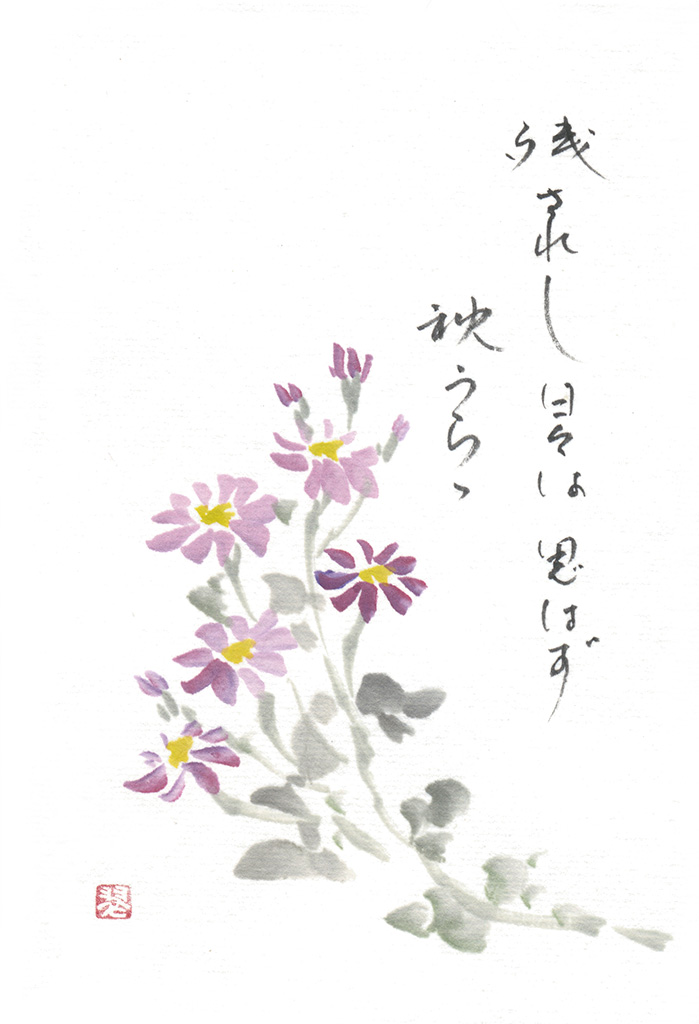 残されし日々は思はず
秋うらゝ